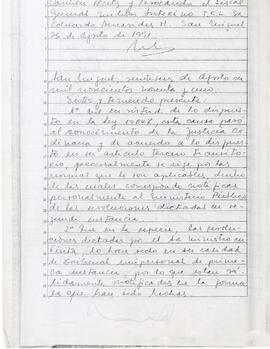 General Militar Interino T.C.L. Sr.
Eduardo Fernández H. San Miguel
26 de Agosto de 1991.
San Miguel, veintiseis de Agosto de
mil novecientos noventa y uno.
Vistos y teniendo presente
1º Que en virtud de lo dispues-
to en la ley 19047 esta causa pasó
al conocimiento de la Justicia Or-
dinaria y de acuerdo a lo dispues-
to en su artículo tercero transi-
torio, procesalmente se rige por las
normas que le son aplicables, dentro
de las cuales corresponde notificar
personalmente al Ministerio Público
de las resoluciones dictadas en se-
gunda instancia.
2º Que en la especie, las resolu-
ciones dictadas por el Sr. Ministro en
Visita, lo han sido en su calidad
de Tribunal unipersonal de prime-
ra instancia, por lo que están vá-
lidamente notificadas en la forma
en que han sido hechas.